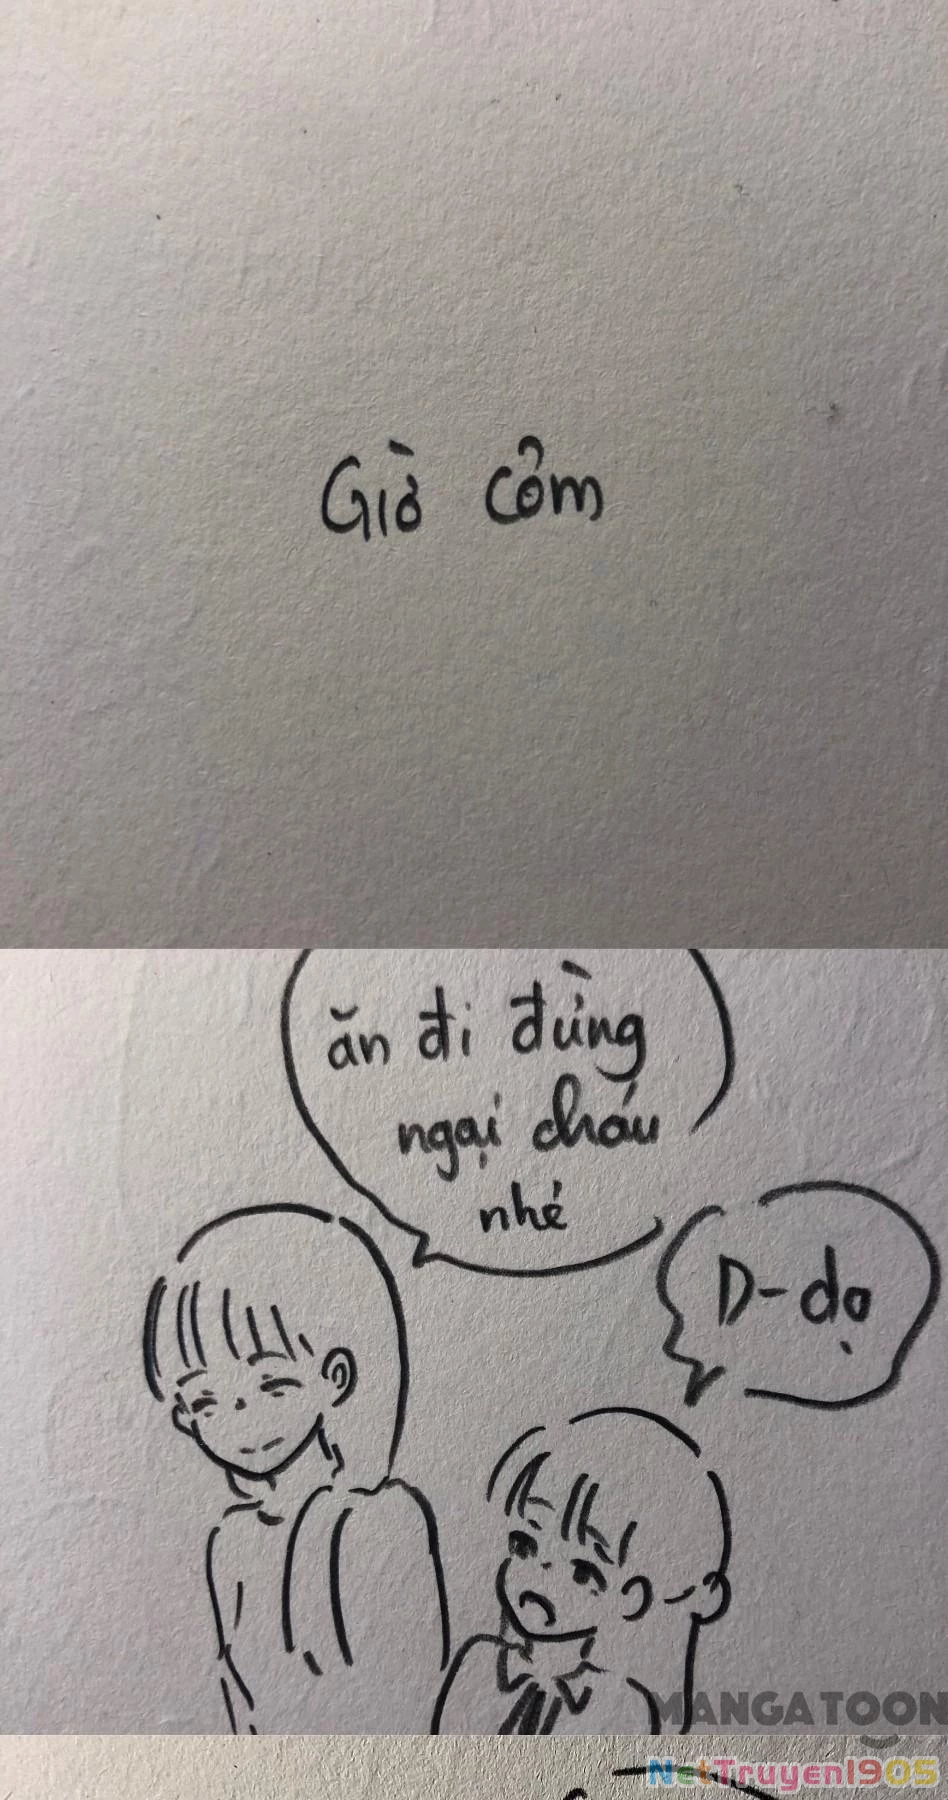 Giờ cơm
ăn đi đừng
ngại cháu
nhé
D-dạ
MANGATOON
NetTruyen1905